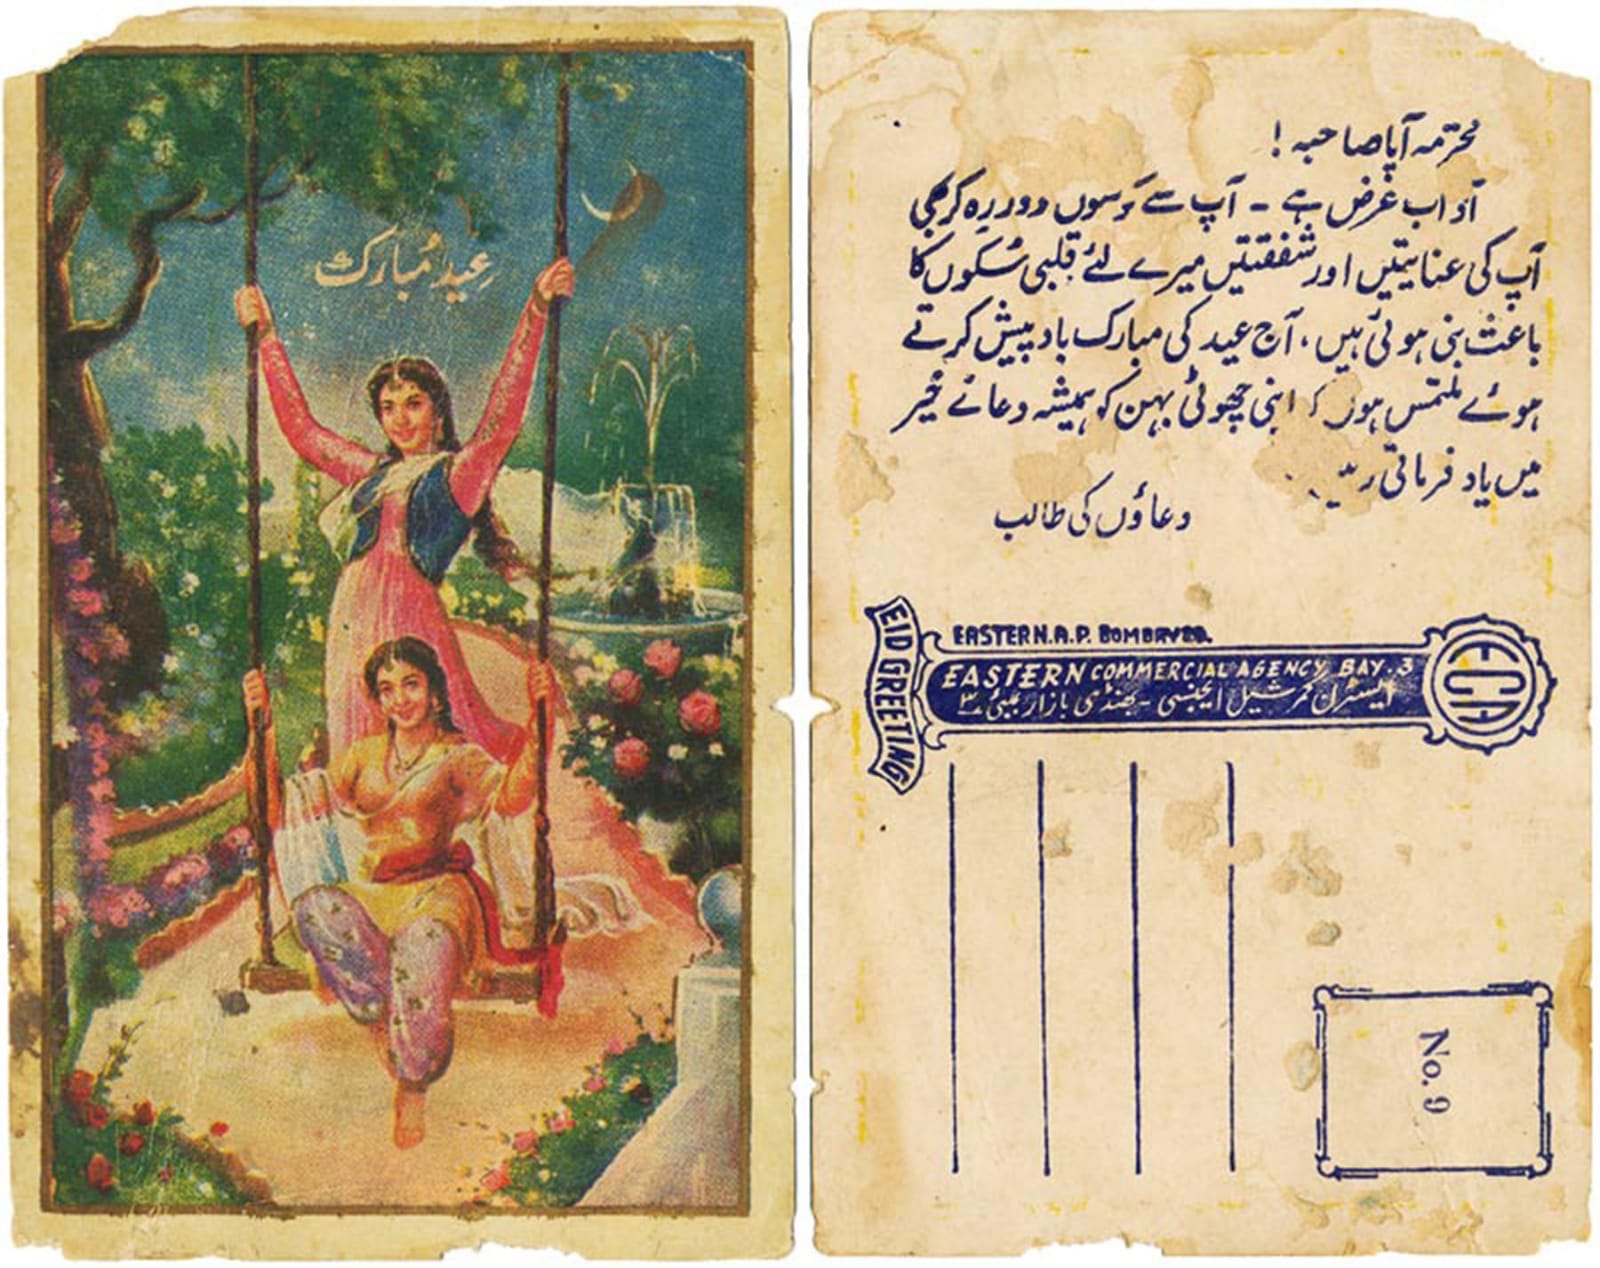 عید مُبارک
محترمہ آپا صاحبہ !
آداب عرض ہے - آپ سے کوسوں دور رہ کر بھی
آپ کی عنایتیں اور شفقتیں میرے لئے قلبی سُکوں کا
باعث بنی ہوئی ہیں، آج عید کی مبارک باد پیش کرتے
ہوئے ملتمس ہوں کہ اپنی چھوٹی بہن کو ہمیشہ دعائے خیر
میں یاد فرماتی رہیں
دعاؤں کی طالب
EID GREETING
EASTERN.A.P. BOMBAY
EASTERN COMMERCIAL AGENCY BAY.3
ایسٹرن کمرشیل ایجنسی - بھنڈی بازار بمبئی ۳
ECA
No. 9